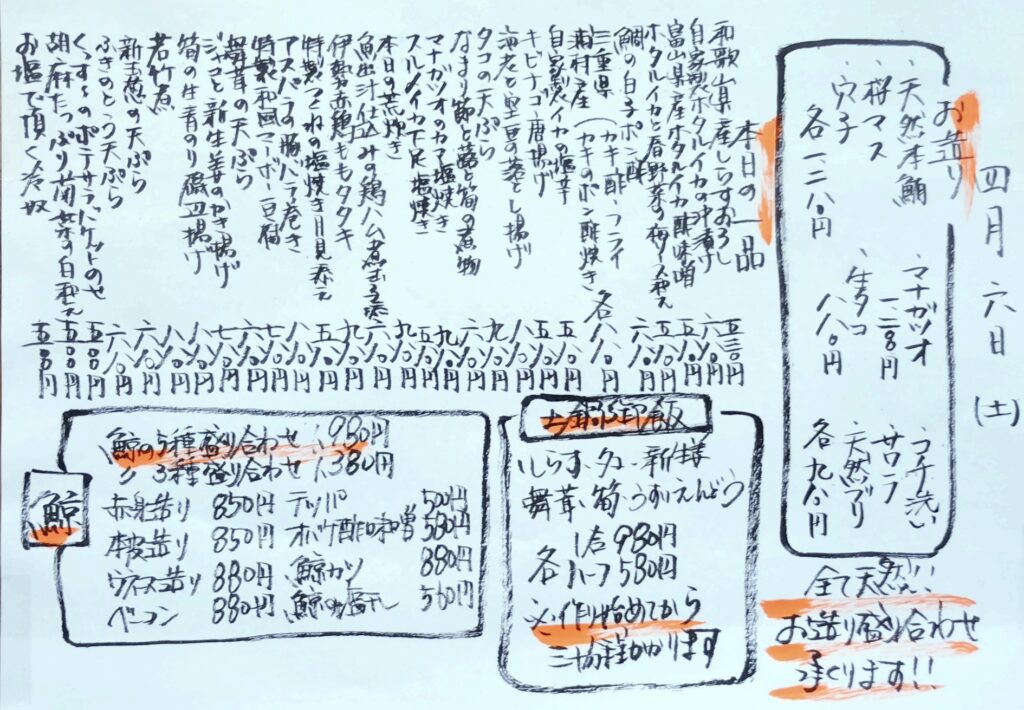 四月六日(土)
お造り
、天然本鮪
、桜マス
、穴子
各一二八〇円
、マナガツオ
一一八〇円
、生タコ
八八〇円
、コチ洗い
、サワラ
、天然ブリ
各九八〇円
全て天然!!
お造り盛り合わせ
承ります!!
本日の一品
和歌山県産しらすおろし 五三〇円
自家製ホタルイカの沖漬け 六八〇円
富山県産ホタルイカ酢味噌 五八〇円
ホタルイカと春野菜の梅ソース和え
鯛の白子ポン酢
三重県 (カキ酢、フライ
浦村産 (カキのポン酢焼き 各八八〇円
自家製イカの塩辛
キビナゴ唐揚げ
海老と空豆の落とし揚げ
タコの天ぷら
なまり節と蕗と筍の煮物
マナガツオのカマ塩焼き
スルメイカ下足塩焼き
本日の荒炊き
魚出汁仕込みの鶏ハム煮玉子添
伊勢赤鶏ももタタキ
特製つくねの塩焼き月見添え
アスパラの豚バラ巻き
特製和風マーボー豆腐
舞茸の天ぷら
ジャコと新生姜のかき揚げ
筍の生青のり磯辺揚げ
若竹煮
新玉葱の天ぷら
ふきのとう天ぷら
くっすーのポテサラバケットのせ
胡麻たっぷり菊菜の白和え 五〇〇円
お塩で頂く冷奴 五〇〇円
土鍋御飯
しらす、タコ、新生姜
舞茸、筍、うすいえんどう
1合 980円
各 ハーフ 580円
※作り始めてから
三十分程かかります
鯨
鯨の5種盛り合わせ 1,980円
〃 3種盛り合わせ 1,380円
赤身造り 850円 テッパ 500円
本皮造り 850円 オバケ酢味噌 580円
ウネス造り 880円 鯨カツ 880円
ベーコン 880円 鯨の塩干し 560円